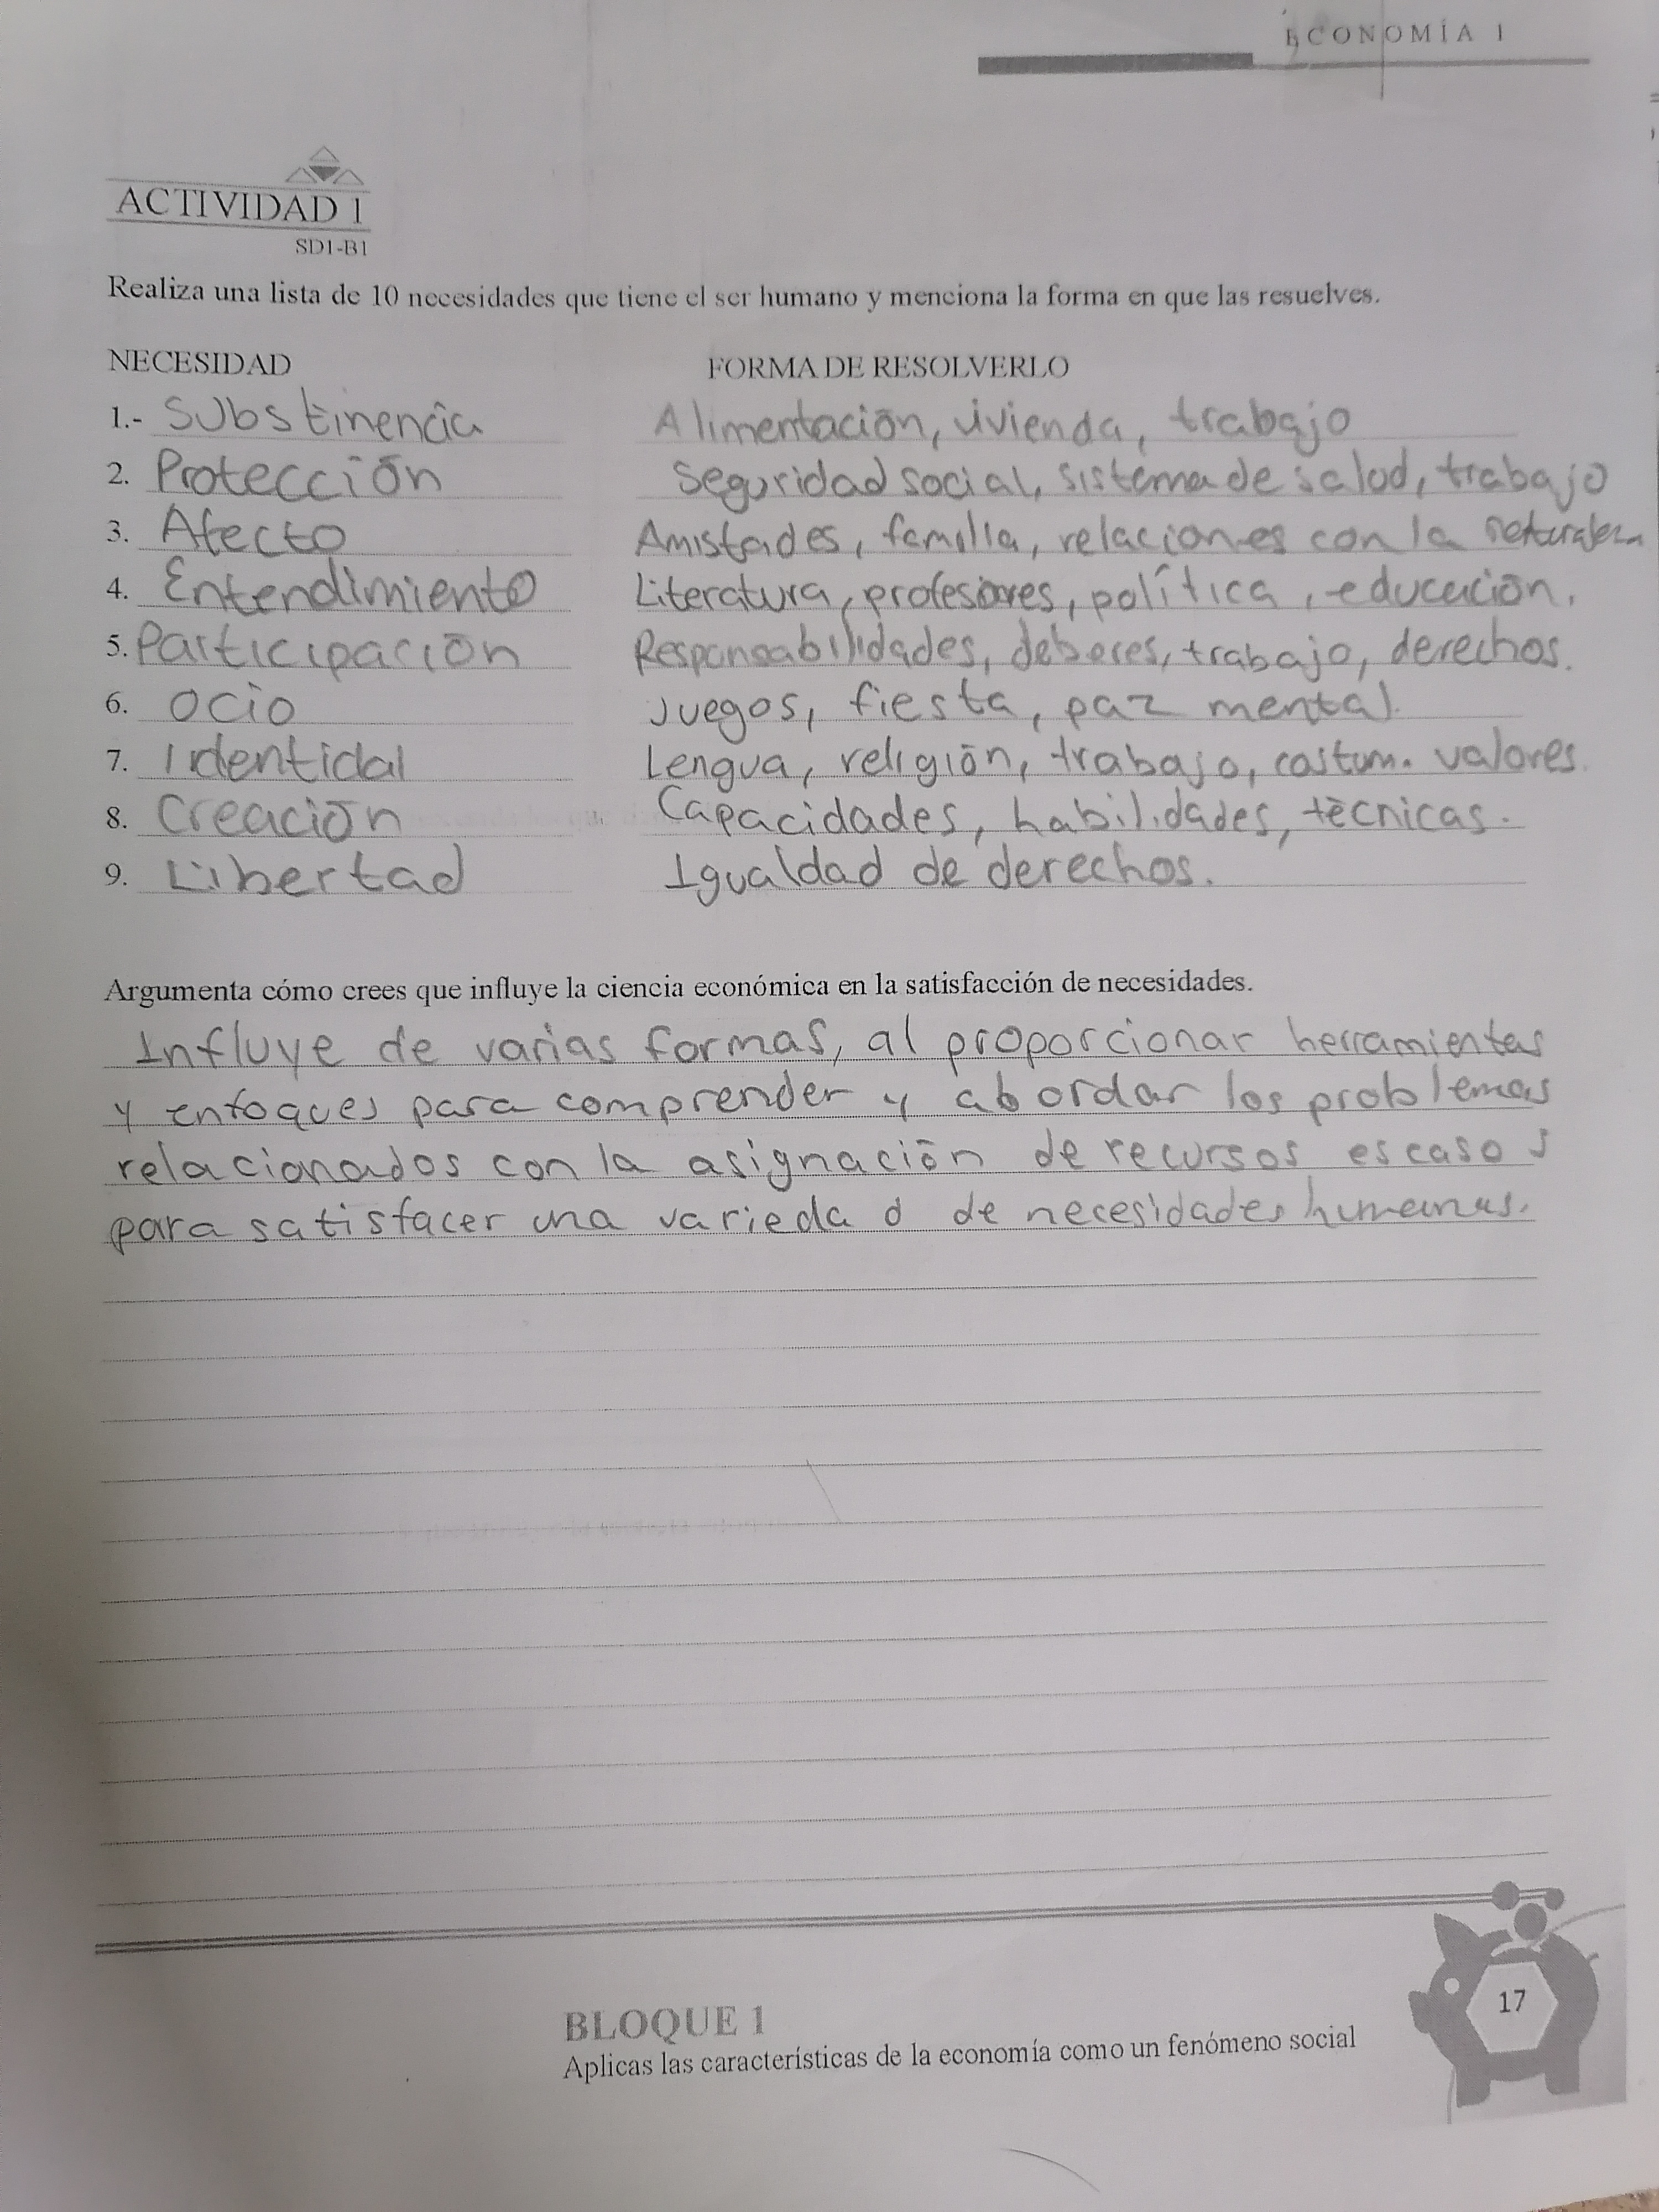 ECONOMÍA 1
ACTIVIDAD 1
SD1-B1
Realiza una lista de 10 necesidades que tiene el ser humano y menciona la forma en que las resuelves.
NECESIDAD FORMA DE RESOLVERLO
1.- Substinencia Alimentación, vivienda, trabajo
2. Protección Seguridad social, sistema de salud, trabajo
3. Afecto Amistades, familia, relaciones con la naturaleza
4. Entendimiento Literatura, profesores, política, educación.
5. Participación Responsabilidades, deberes, trabajo, derechos.
6. Ocio Juegos, fiesta, paz mental.
7. Identidal Lengua, religión, trabajo, costum. valores.
8. Creación Capacidades, habilidades, tècnicas.
9. Libertad Igualdad de derechos.
Argumenta cómo crees que influye la ciencia económica en la satisfacción de necesidades.
Influye de varias formas, al proporcionar herramientas
y enfoques para comprender y abordar los problemas
relacionados con la asignación de recursos escasos
para satisfacer una variedad de necesidades humanas.
BLOQUE 1
Aplicas las características de la economía como un fenómeno social
17